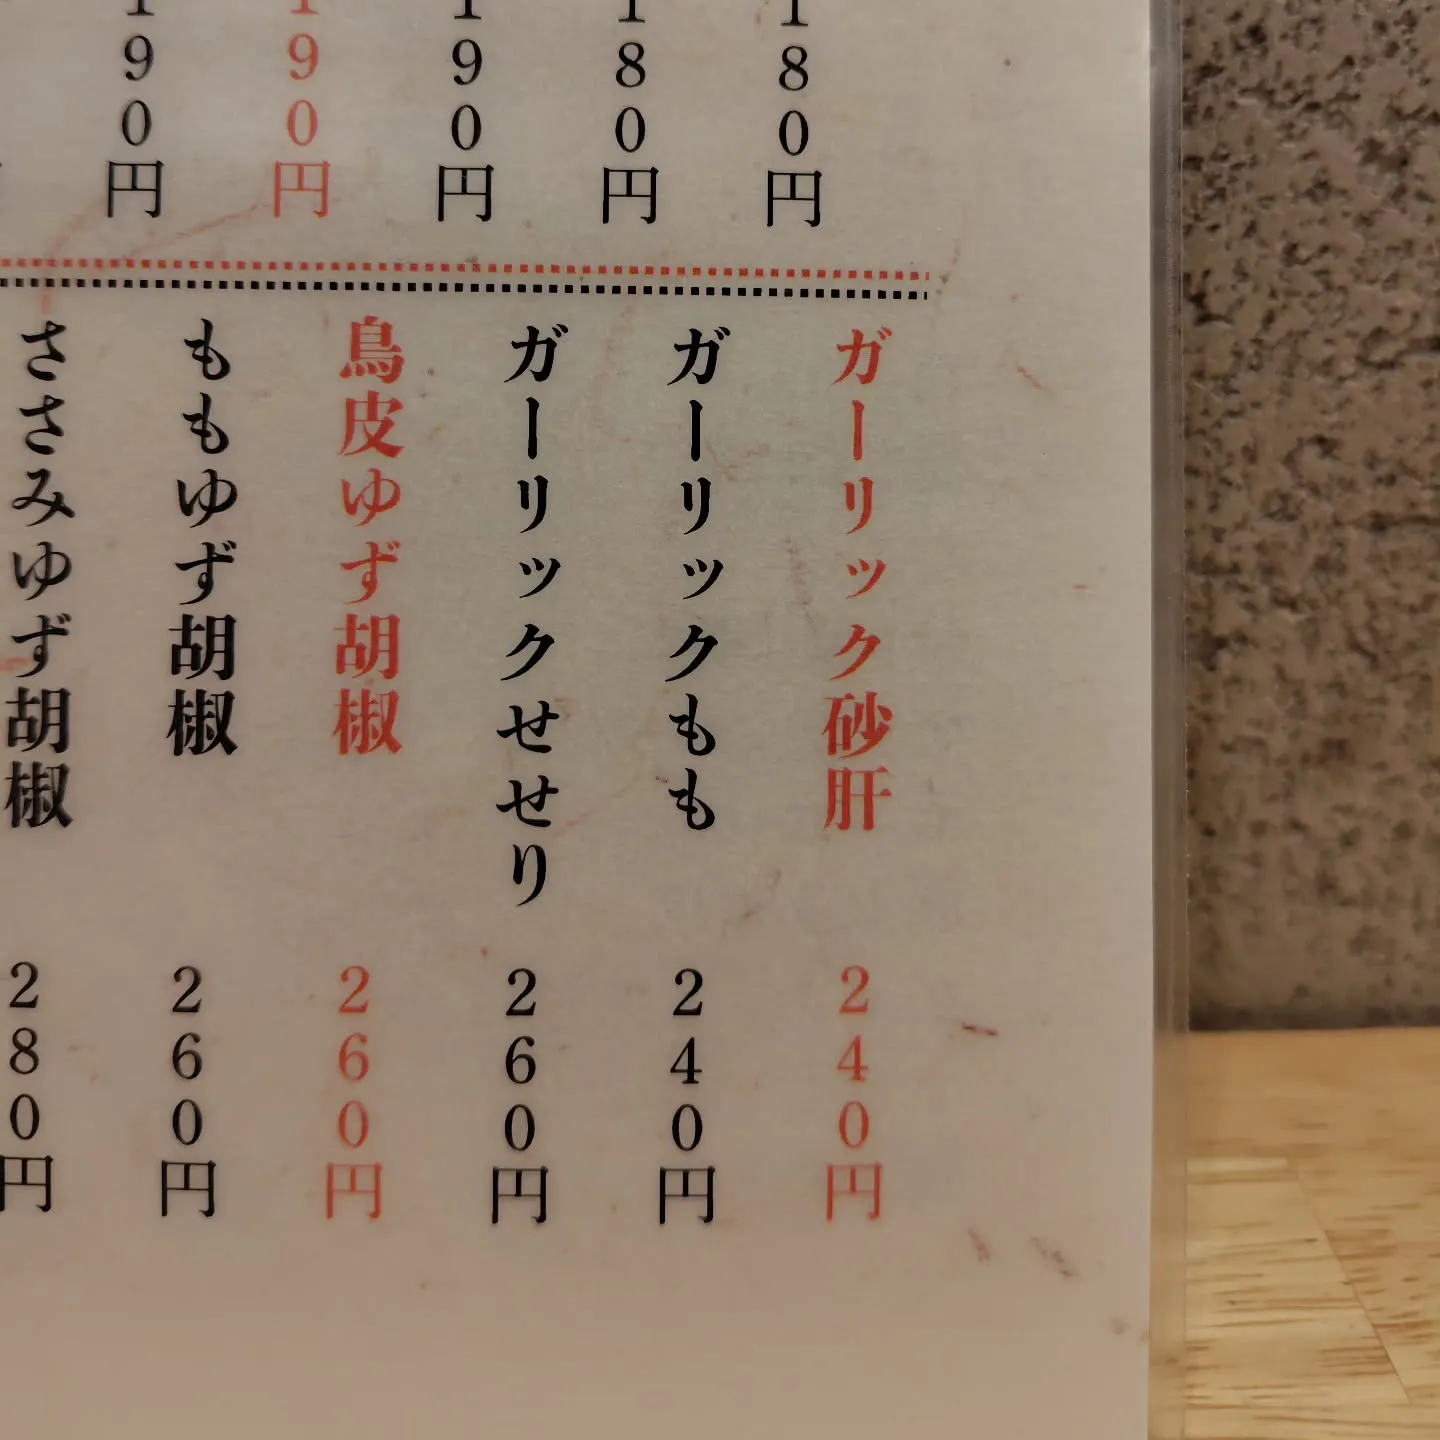 180円
180円
190円
190円
190円
ガーリック砂肝 240円
ガーリックもも 240円
ガーリックせせり 260円
鳥皮ゆず胡椒 260円
ももゆず胡椒 260円
ささみゆず胡椒 280円